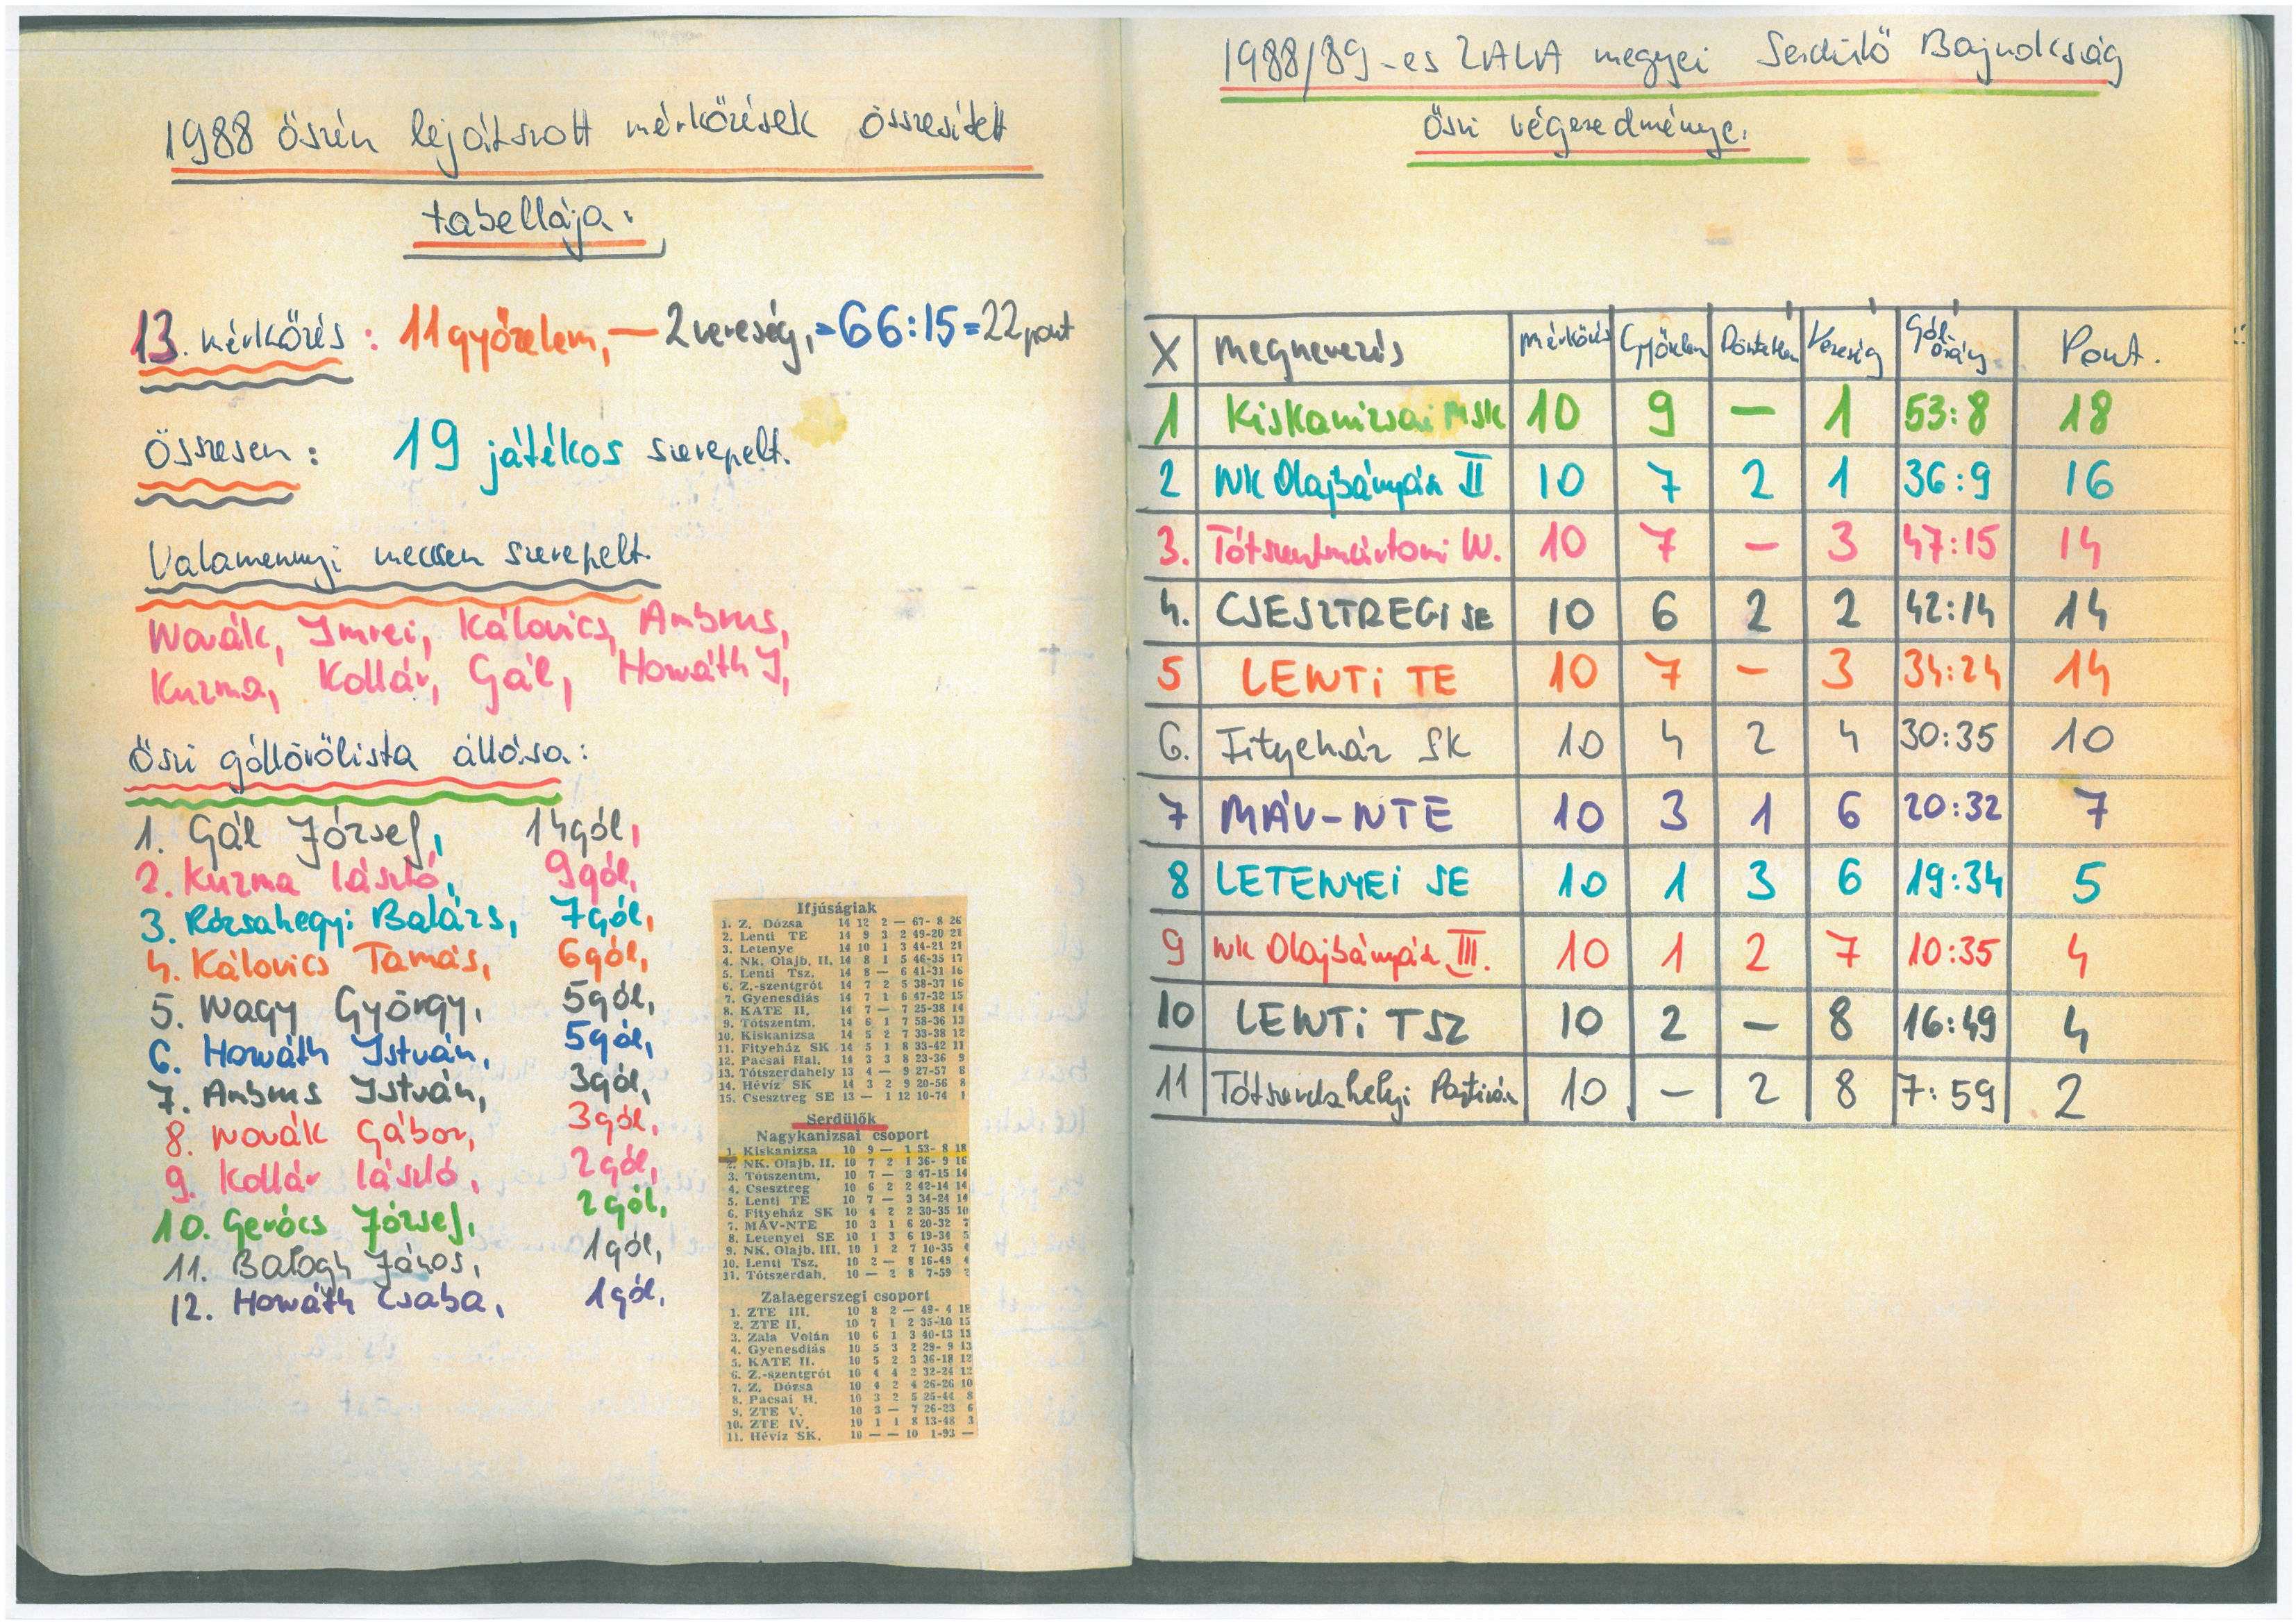 1988 őszén lejátszott mérkőzések összesített
tabellája:
13. mérkőzés: 11 győzelem, — 2 vereség, = 66:15 = 22 pont
Összesen: 19 játékos szerepelt.
Valamennyi meccsen szerepelt.
Novák, Imrei, Kálovics, Ambrus,
Kuzma, Kollár, Gál, Horváth I,
Őszi góllövőlista állása:
1. Gál József, 14 gól,
2. Kuzma László, 9 gól,
3. Rózsahegyi Balázs, 7 gól,
4. Kálovics Tamás, 6 gól,
5. Nagy György, 5 gól,
6. Horváth István, 5 gól,
7. Ambrus István, 3 gól,
8. Novák Gábor, 3 gól,
9. Kollár László, 2 gól,
10. Gerócs József, 2 gól,
11. Balogh János, 1 gól,
12. Horváth Csaba, 1 gól,
Ifjúságiak
1. Z. Dózsa 14 12 2 — 67- 8 26
2. Lenti TE 14 9 3 2 49-20 21
3. Letenye 14 10 1 3 44-21 21
4. Nk. Olajb. II. 14 8 1 5 46-35 17
5. Lenti Tsz. 14 8 — 6 41-31 16
6. Z.-szentgrót 14 7 2 5 38-37 16
7. Gyenesdiás 14 7 1 6 47-32 15
8. KATE II. 14 7 — 7 25-38 14
9. Tótszentm. 14 6 1 7 58-36 13
10. Kiskanizsa 14 5 2 7 33-38 12
11. Fityeház SK 14 5 1 8 33-42 11
12. Pacsai Hal. 14 3 3 8 23-36 9
13. Tótszerdahely 13 4 — 9 27-57 8
14. Hévíz SK 14 3 2 9 20-56 8
15. Csesztreg SE 13 — 1 12 10-74 1
Serdülők
Nagykanizsai csoport
1. Kiskanizsa 10 9 — 1 53- 8 18
2. NK. Olajb. II. 10 7 2 1 36- 9 16
3. Tótszentm. 10 7 — 3 47-15 14
4. Csesztreg 10 6 2 2 42-14 14
5. Lenti TE 10 7 — 3 34-24 14
6. Fityeház SK 10 4 2 2 30-35 10
7. MÁV-NTE 10 3 1 6 20-32 7
8. Letenyei SE 10 1 3 6 19-34 5
9. NK. Olajb. III. 10 1 2 7 10-35 4
10. Lenti Tsz. 10 2 — 8 16-49 4
11. Tótszerdah. 10 — 2 8 7-59 2
Zalaegerszegi csoport
1. ZTE III. 10 8 2 — 49- 4 18
2. ZTE II. 10 7 1 2 35-10 15
3. Zala Volán 10 6 1 3 40-13 13
4. Gyenesdiás 10 5 3 2 29- 9 13
5. KATE II. 10 5 2 3 36-18 12
6. Z.-szentgrót 10 4 4 2 32-24 12
7. Z. Dózsa 10 4 2 4 26-26 10
8. Pacsai H. 10 3 2 5 25-44 8
9. ZTE V. 10 3 — 7 26-23 6
10. ZTE IV. 10 1 1 8 13-48 3
11. Hévíz SK. 10 — — 10 1-93 —
1988/89-es ZALA megyei Serdülő Bajnokság
őszi végeredménye.
X megnevezés mérkőzés Győzelem Döntetlen Vereség Gólarány Pont.
1 Kiskanizsai MSK 10 9 — 1 53:8 18
2 NK Olajbányász II 10 7 2 1 36:9 16
3. Tótszentmártoni W. 10 7 — 3 47:15 14
4. CSESZTREGI SE 10 6 2 2 42:14 14
5 LENTI TE 10 7 - 3 34:24 14
6. Fityeház SK 10 4 2 4 30:35 10
7 MÁV-NTE 10 3 1 6 20:32 7
8 LETENYEI SE 10 1 3 6 19:34 5
9 NK Olajbányász III. 10 1 2 7 10:35 4
10 LENTI TSZ 10 2 — 8 16:49 4
11 Tótszerdahelyi Partizán 10 — 2 8 7:59 2